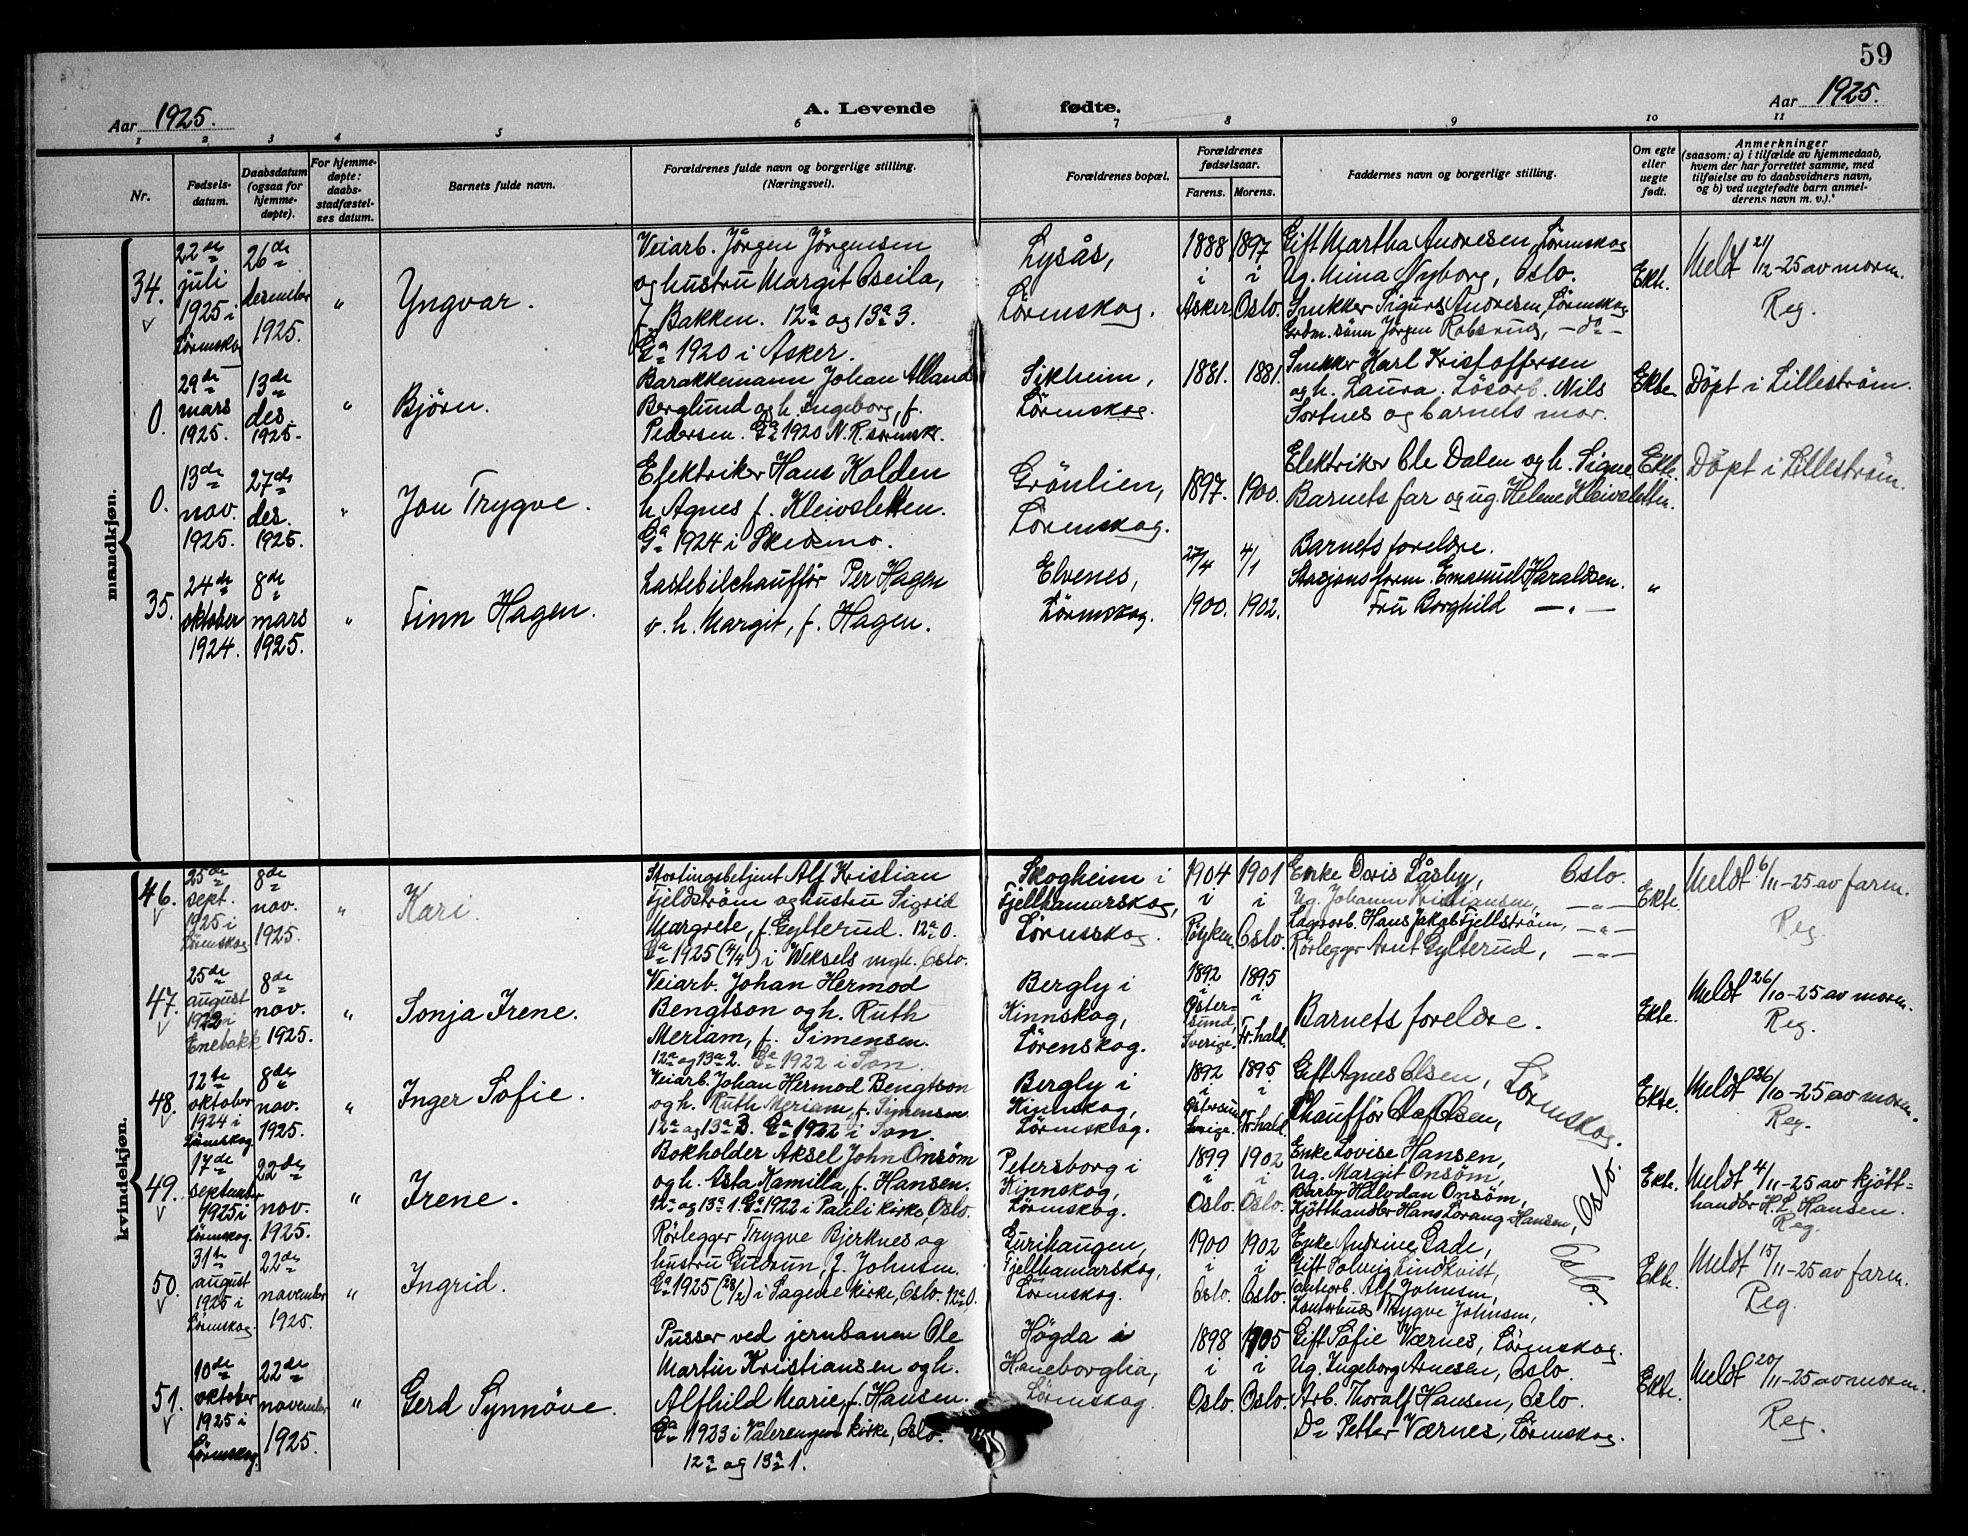 59
Aar 1925.
A. Levende fødte.
Aar 1925.
1 2 3 4 5 6 7 8 9 10 11
Nr.
Fødsels-
datum.
Daabsdatum
(ogsaa for
hjemme-
døpte).
For hjemme-
døpte:
daabs-
stadfæstel-
ses datum.
Barnets fulde navn.
Forældrenes fulde navn og borgerlige stilling.
(Næringsvei).
Forældrenes bopæl.
Forældrenes
fødselsaar.
Farens. Morens.
Faddernes navn og borgerlige stilling.
Om egte
eller
uegte
født.
Anmerkninger
(saasom: a) i tilfælde av hjemmedaab,
hvem der har forrettet samme, med
tilføielse av to daabsvidners navn,
og b) ved uegtefødte barn anmel-
derens navn m. v.).
mandkjøn.
34.
22de
juli
1925 i
Lørenskog
26de
desember
1925.
"
Yngvar.
Veiarb. Jörgen Jörgensen
og hustru Margit Oseila,
f. Bakken. 12a og 13a 3.
Ga 1920 i Asker.
Lysås,
Lörenskog.
1888 1897
i i
Asker. Oslo.
Gift Martha Andresen, Lörenskog
Ug. Mina Nyborg, Oslo.
Snekker Sigurd Andresen, Lörenskog
Grdm. sönn Jörgen Robsrud, — do —
Ekte.
Meldt 21/12-25 av moren.
Reg.
0.
29de
mars
1925.
13de
des.
1925.
"
Björn.
Barakkemann Johan Alland
Berglund og h. Ingeborg, f.
Pedersen. Ga 1920 N.R.
Sikheim,
Lörenskog.
1881. 1881.
Snekker Karl Kristoffersen
og h. Laura. Lösarb. Nils
Sortnes og barnets mor.
Ekte.
Döpt i Lilleström.
0.
13de
nov.
1925.
27de
des.
1925.
"
Jon Trygve.
Elektriker Hans Kolden
h. Agnes f. Kleivsletten.
Ga 1924 i Skedsmo.
Grönlien,
Lörenskog.
1897. 1900.
Elektriker Ole Dalen og h. Signe
Barnets far og ug. Helene Kleivsletten.
Ekte.
Döpt i Lilleström.
35.
24de
oktober
1924.
8de
mars
1925.
"
Finn Hagen.
Lastebilchauffør Per Hagen
o. h. Margit, f. Hagen.
Elvenes,
Lörenskog.
27/4 4/1
1900. 1902.
Barnets foreldre.
Stasjonsform. Emanuel Haraldsen.
Fru Borghild — " —
"
kvindekjøn.
46.
25de
sept.
1925 i
Lörenskog
8de
nov.
1925.
"
Kari.
Stortingsbetjent Alf Kristian
Fjeldström og hustru Sigrid
Margrete, f. Gylterud. 12a 0.
Ga 1925 (4/4) i Weksels mgh. Oslo.
Skogheim i
Fjellhamarskog,
Lörenskog.
1904 1901
i i
Röyken. Oslo.
Enke Doris Låsby, Oslo.
Ug. Johanne Kristiansen, — " —
Lagerarb. Hans Jakob Fjellström, — " —
Rörlegger Arnt Gylterud, — " —
Ekte.
Meldt 6/11-25 av faren.
Reg.
47.
25de
august
1922 i
Enebakk
8de
nov.
1925.
"
Sonja Irene.
Veiarb. Johan Hermod
Bengtson og h. Ruth
Meriam, f. Simensen.
12a og 13a 2. Ga 1922 i Son.
Bergly i
Kinnskog,
Lörenskog.
1892 1895
i i
Öster-
sund,
Sverige. Fr.hald.
Barnets foreldre.
Ekte.
Meldt 26/10-25 av moren.
Reg.
48.
12te
oktober
1924 i
Lörenskog
8de
nov.
1925.
"
Inger Sofie.
Veiarb. Johan Hermod Bengtson
og h. Ruth Meriam, f. Simensen.
12a og 13a 3. Ga 1922 i Son.
Bergly i
Kinnskog,
Lörenskog.
1892 1895
i i
Östersund
Sverige. Fr.hald.
Gift Agnes Olsen,
Chaufför Olaf Olsen,
Lörenskog.
Ekte.
Meldt 26/10-25 av moren.
Reg.
49.
17de
september
1925 i
Lörenskog.
22de
nov.
1925.
"
Irene.
Bokholder Aksel John Onsöm
og h. Asta Kamilla, f. Hansen.
12a og 13a 1. Ga 1922 i Pauli kirke, Oslo.
Petersborg i
Kinnskog,
Lörenskog.
1899 1902
i i
Oslo. Oslo.
Enke Lovise Hansen,
Ug. Margit Onsöm,
Barber Halvdan Onsöm,
Kjötthandler Hans Lorang Hansen,
Oslo.
Ekte.
Meldt 4/11-25 av kjött-
handler H. L. Hansen.
Reg.
50.
31te
august
1925 i
Lörenskog.
22de
november
1925.
"
Ingrid.
Rörlegger Trygve Bjerknes og
hustru Gudrun, f. Johnsen.
Ga 1925 (28/2) i Sagene kirke, Oslo. 12a 0.
Gurihaugen,
Fjellhamarskog,
Lörenskog.
1900 1902
i i
Oslo. Oslo.
Enke Andrine Gade,
Gift Solveig Lindkvist,
Alf Johnsen,
Kontorbud Trygve Johnsen,
Oslo.
Ekte.
Meldt 15/11-25 av faren.
Reg.
51.
10de
oktober
1925 i
Lörenskog.
22de
november
1925.
"
Gerd Synnöve.
Pusser ved jernbanen Ole
Martin Kristiansen og h.
Alfhild Marie, f. Hansen.
Ga 1923 i Vålerengen kirke, Oslo.
12a og 13a 1.
Högda i
Haneborglia,
Lörenskog.
1898 1905
i i
Oslo. Oslo.
Gift Sofie Værnes, Lörenskog.
Ug. Ingeborg Arnesen, Oslo.
Arb. Thoralf Hansen, Oslo.
Do Petter Værnes, Lörenskog.
Ekte.
Meldt 20/11-25 av moren.
Reg.